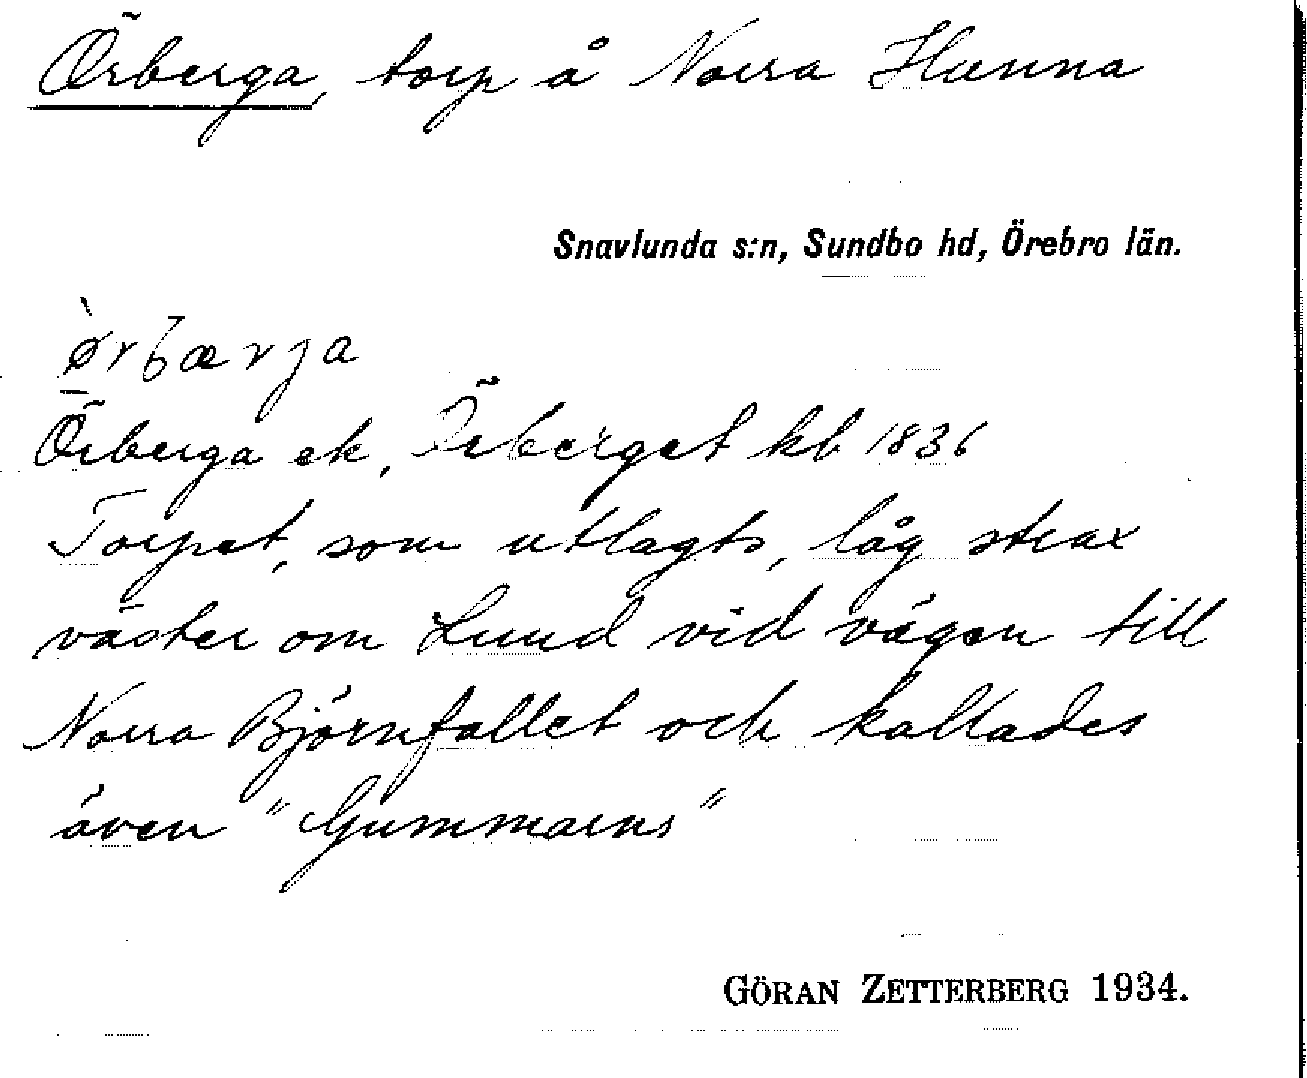 Örberga, torp å Norra Hunna
Snavlunda s:n, Sundbo hd, Örebro län.
ø̀rbærja
Örberga ek, Örberget kb 1836
Torpet, som utlagts, låg strax
väster om Lund vid vägen till
Norra Björnfallet och kallades
även "Gummarns"
GÖRAN ZETTERBERG 1934.